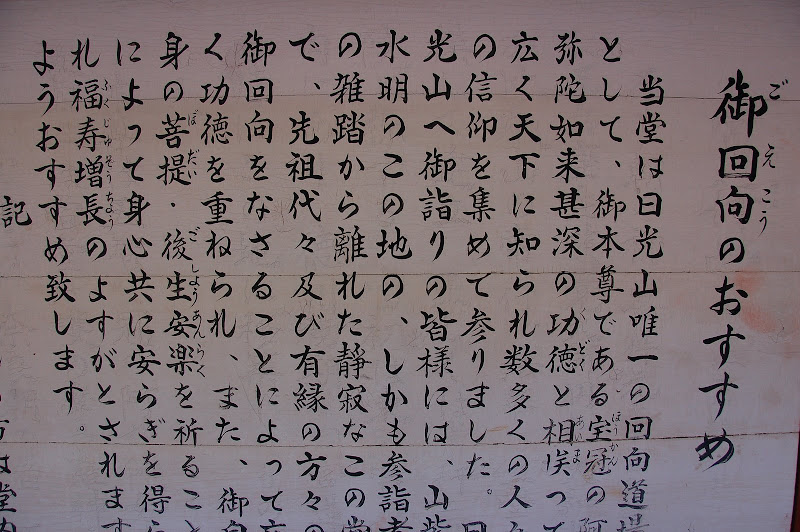 御回向のおすすめ
当堂は日光山唯一の回向道
として、御本尊である宝冠の阿
弥陀如来甚深の功徳と相俟って
広く天下に知られ数多くの人
の信仰を集めて参りました。日
光山へ御詣りの皆様には、山紫
水明のこの地の、しかも参詣者
の雑踏から離れた静寂なこの堂
で、先祖代々及び有縁の方々の
御回向をなさることによって
く功徳を重ねられ、また、御自
身の菩提・後生安楽を祈ること
によって身心共に安らぎを得ら
れ福寿増長のよすがとされます
ようおすすめ致します。
記